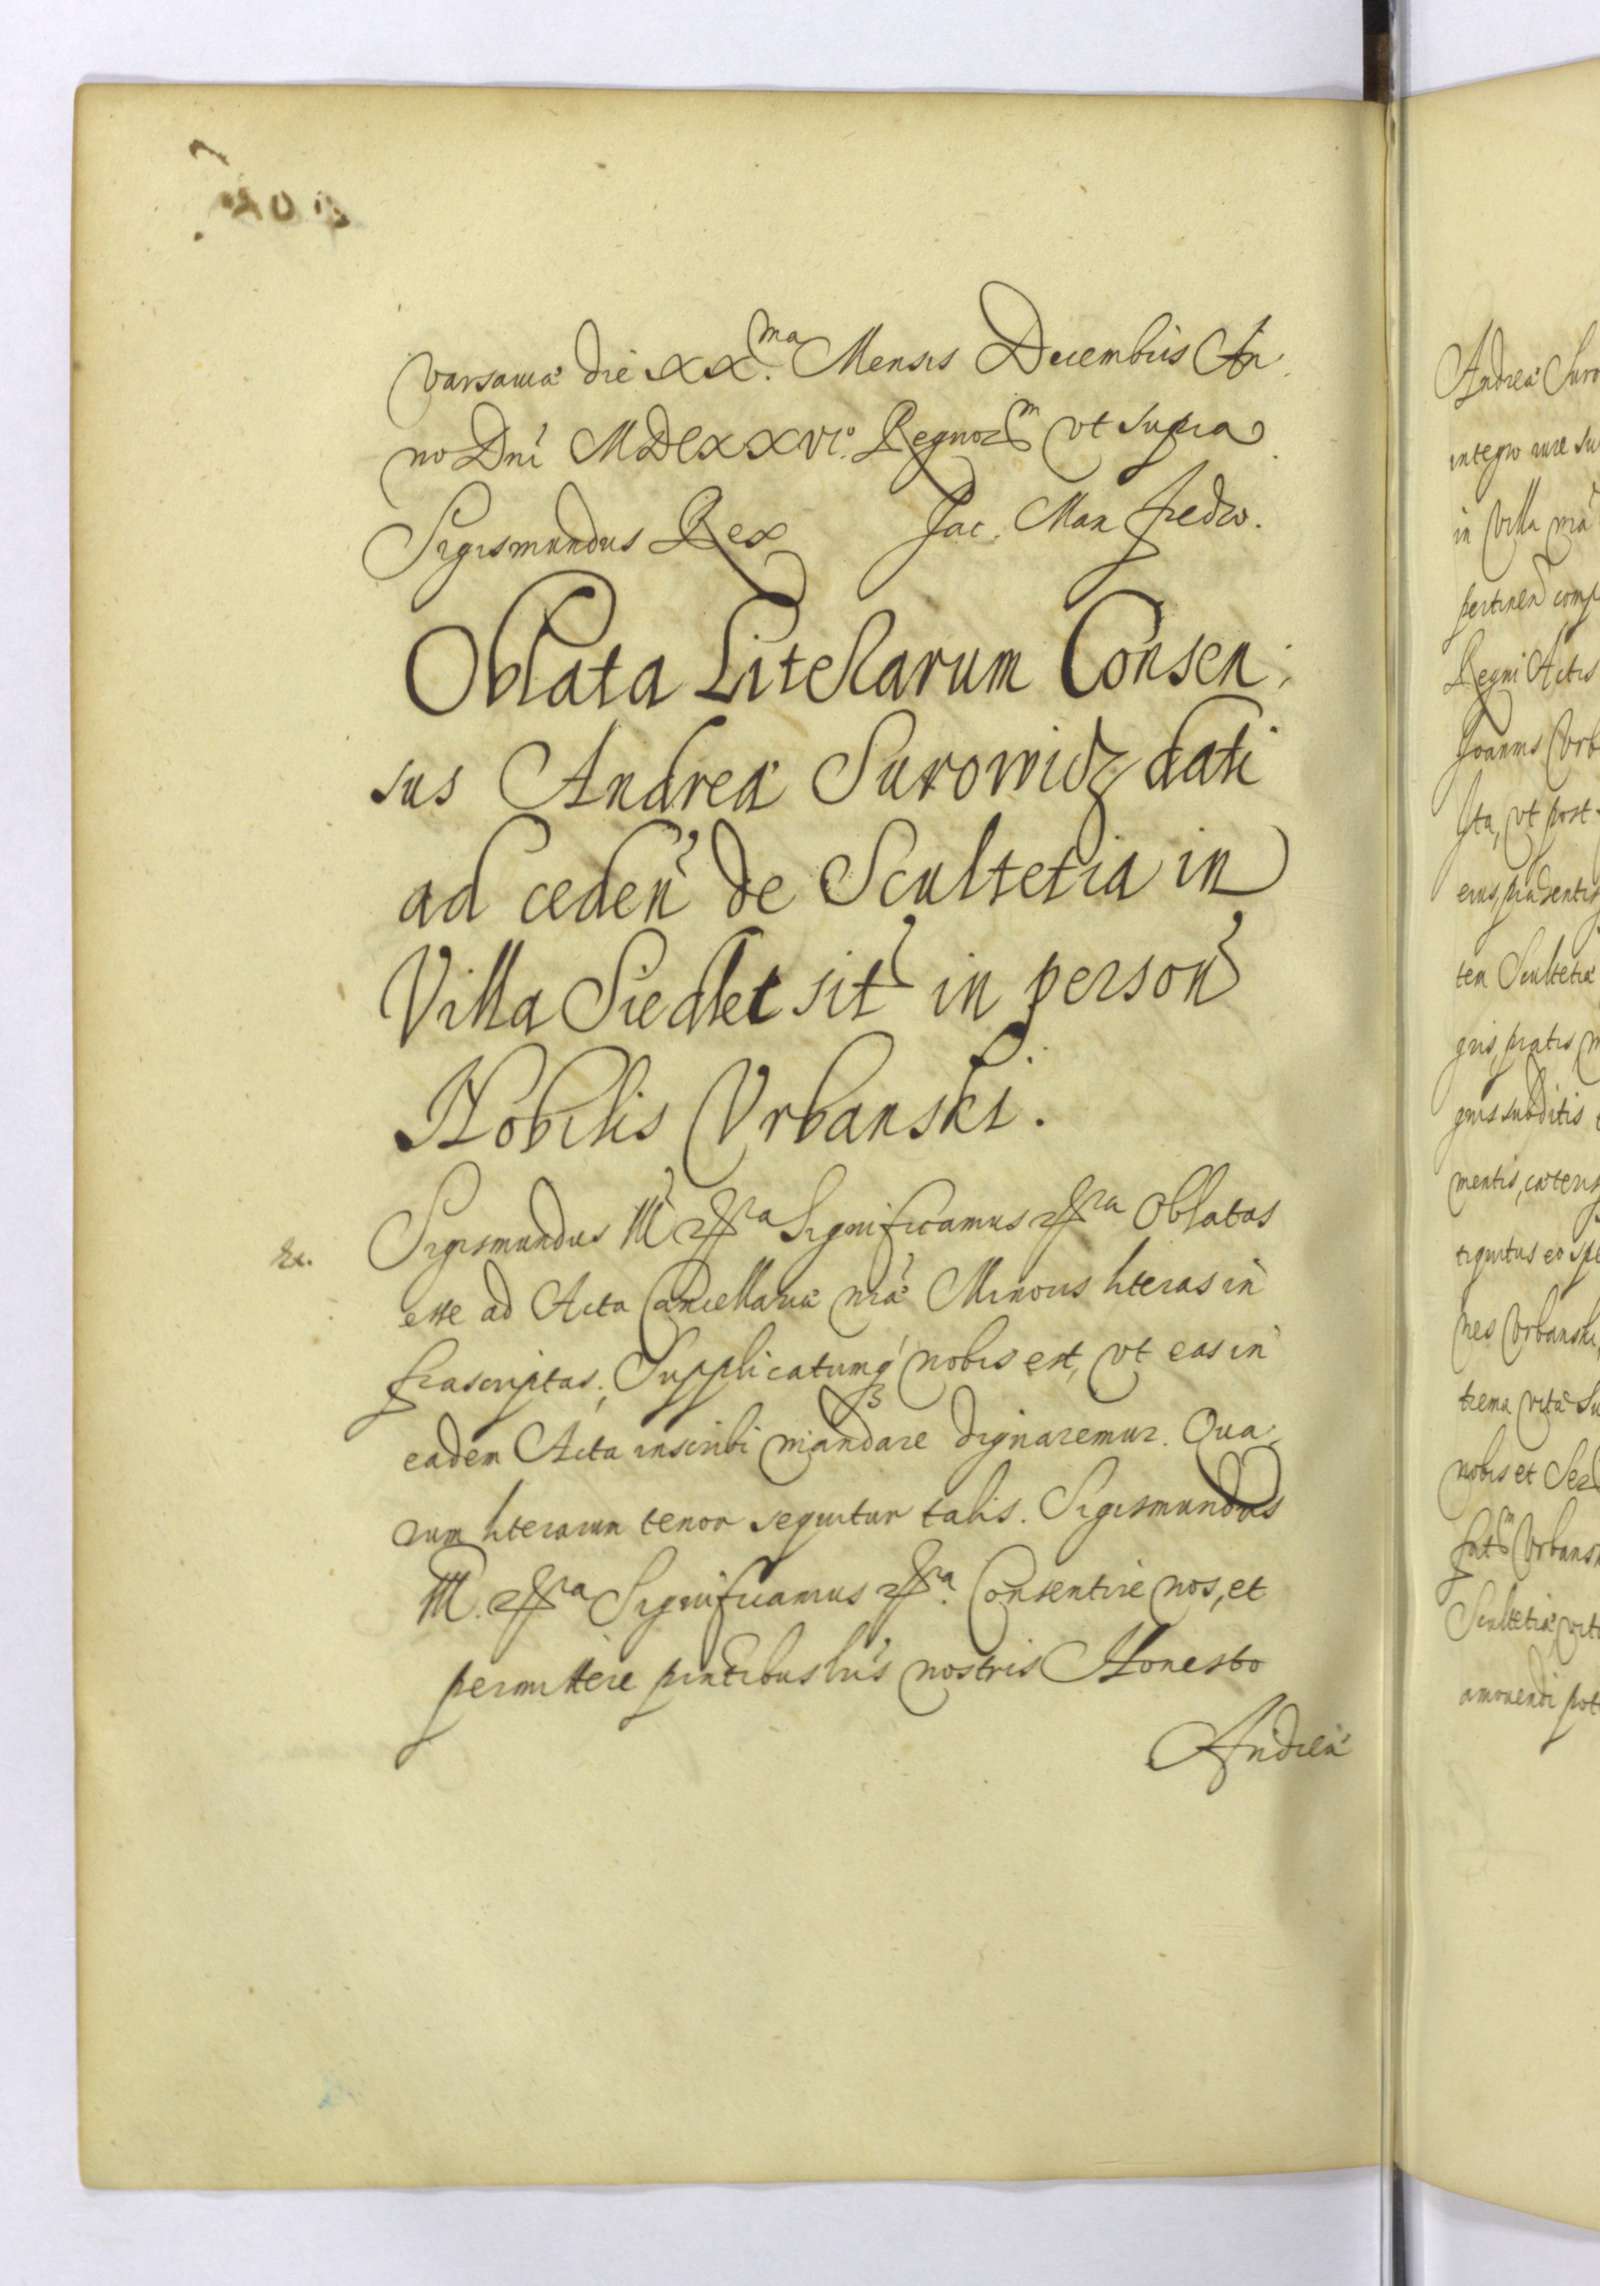 Varsaviæ die XX.ma Mensis Decembris An
no Dni MDCXXVI.o Regnor m Vt supra
Sigismundus Rex Jac. Man fredo.
Oblata Literarum Consen
sus Andreæ Surowicz dati
ad ceden de Scultetia in
Villa Siedlec sit in person
Nobilis Vrbanski.
Sigismundus III ra Significamus ra Oblatas
esse ad Acta Cancellariæ nræ Minoris literas in
frascriptas, Supplicatumq nobis est, vt eas in
eadem Acta inscribi mandare dignaremur. Qua
rum literarum tenor sequitur talis. Sigismundus
III. ra Significamus ra. Consentire nos, et
permittere pntibus lris nostris Honesto
Andreæ
Andreæ Suro
integro iure su
in Villa nra
pertinen comp
Regni Actis
Joannis Vrb
Ita, vt post
eius, præsentis
tem Scultetiæ
gris, pratis,
gnis subditis
mentis, cæteris
tiquitus eo spe
nes Vrbanski,
trema vitæ su
nobis et Ser
fat m Vrbans
Scultetiæ, vit
amovendi pot